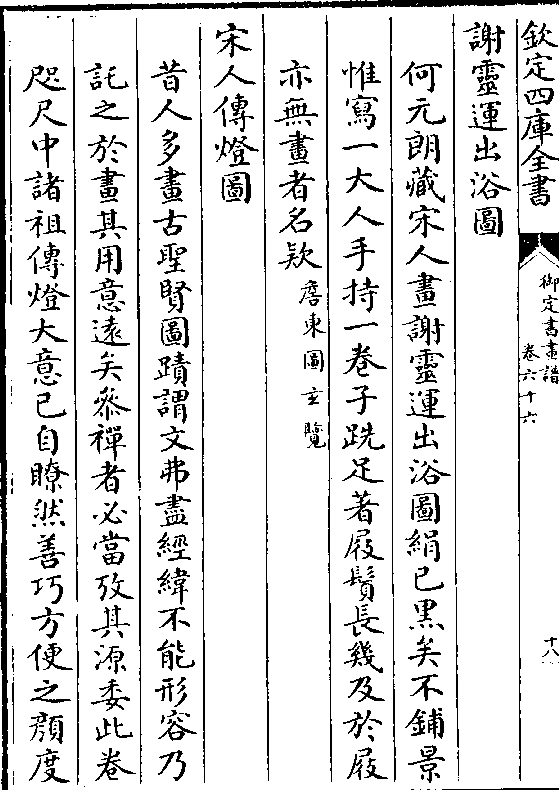 欽定四庫全書
御定書畫譜
卷六十六
十八
謝靈運出浴圖
何元朗藏宋人畫謝靈運出浴圖絹已黑矣不鋪景
惟寫一大人手持一卷子跣足著屐鬢長幾及於屐
亦無畫者名款詹東圖玄覽
宋人傳燈圖
昔人多畫古聖賢圖蹟謂文弗盡經緯不能形容乃
託之於畫其用意遠矣叅禪者必當攷其源委此卷
咫尺中諸祖傳燈大意已自瞭然善巧方便之顏度